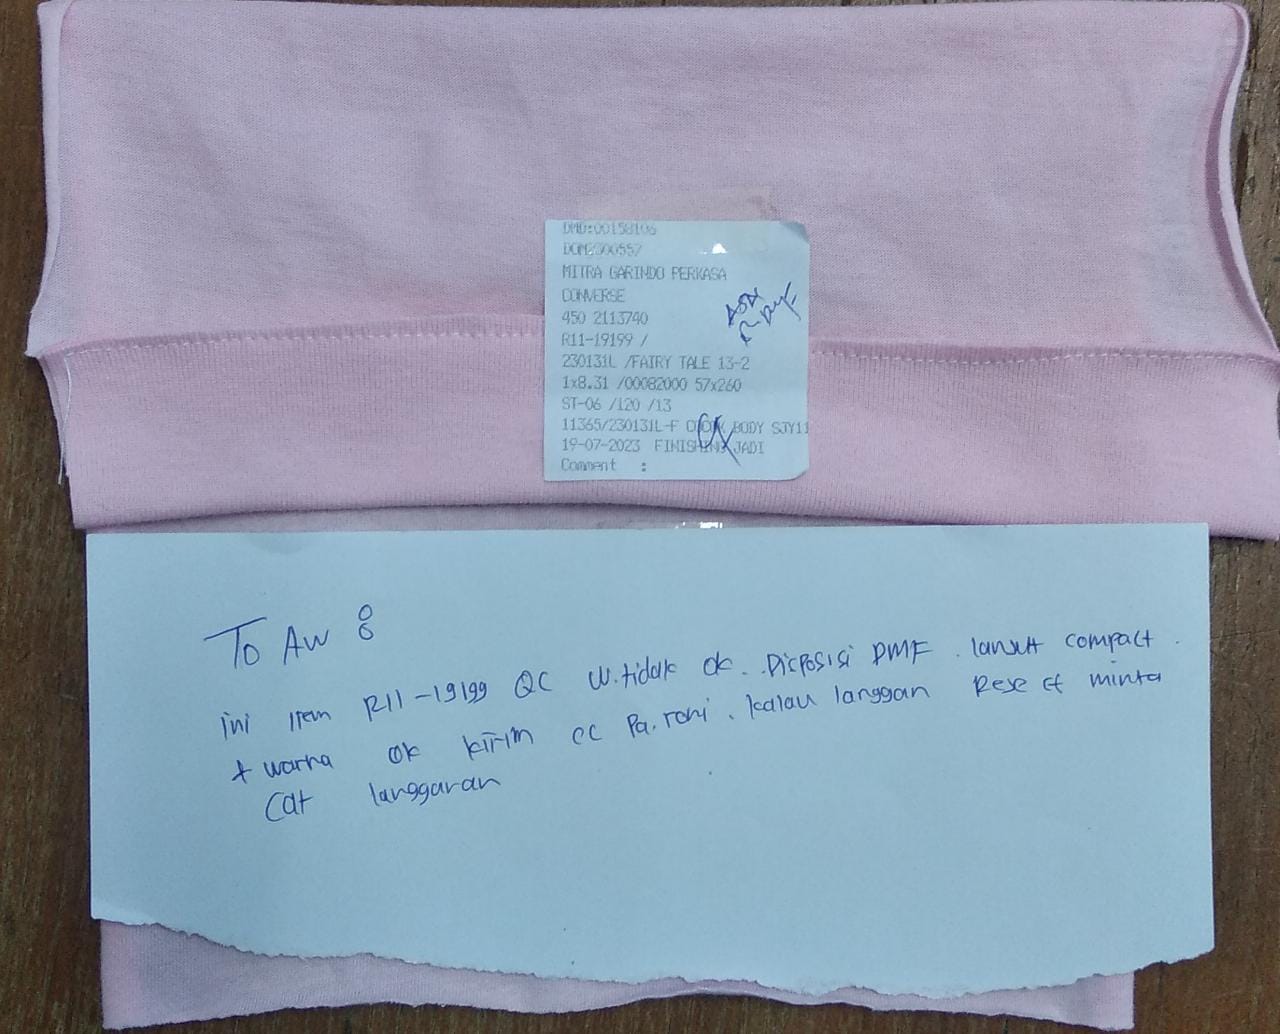 DMD:00158106
DOM2300557
MITRA GARINDO PERKASA
CONVERSE
450 2113740
R11-19199 /
230131L /FAIRY TALE 13-2
1x8.31 /00082000 57x260
ST-06 /120 /13
11365/230131L-F BODY SJY11
19-07-2023 FINISHING JADI
Comment :
To Aw :
ini item R11-19199 QC W.tidak ok. Disposisi DMF. lanjut compact.
+ warna ok kirim cc Pa.roni. kalau langgan Reject minta
Cat langgaran